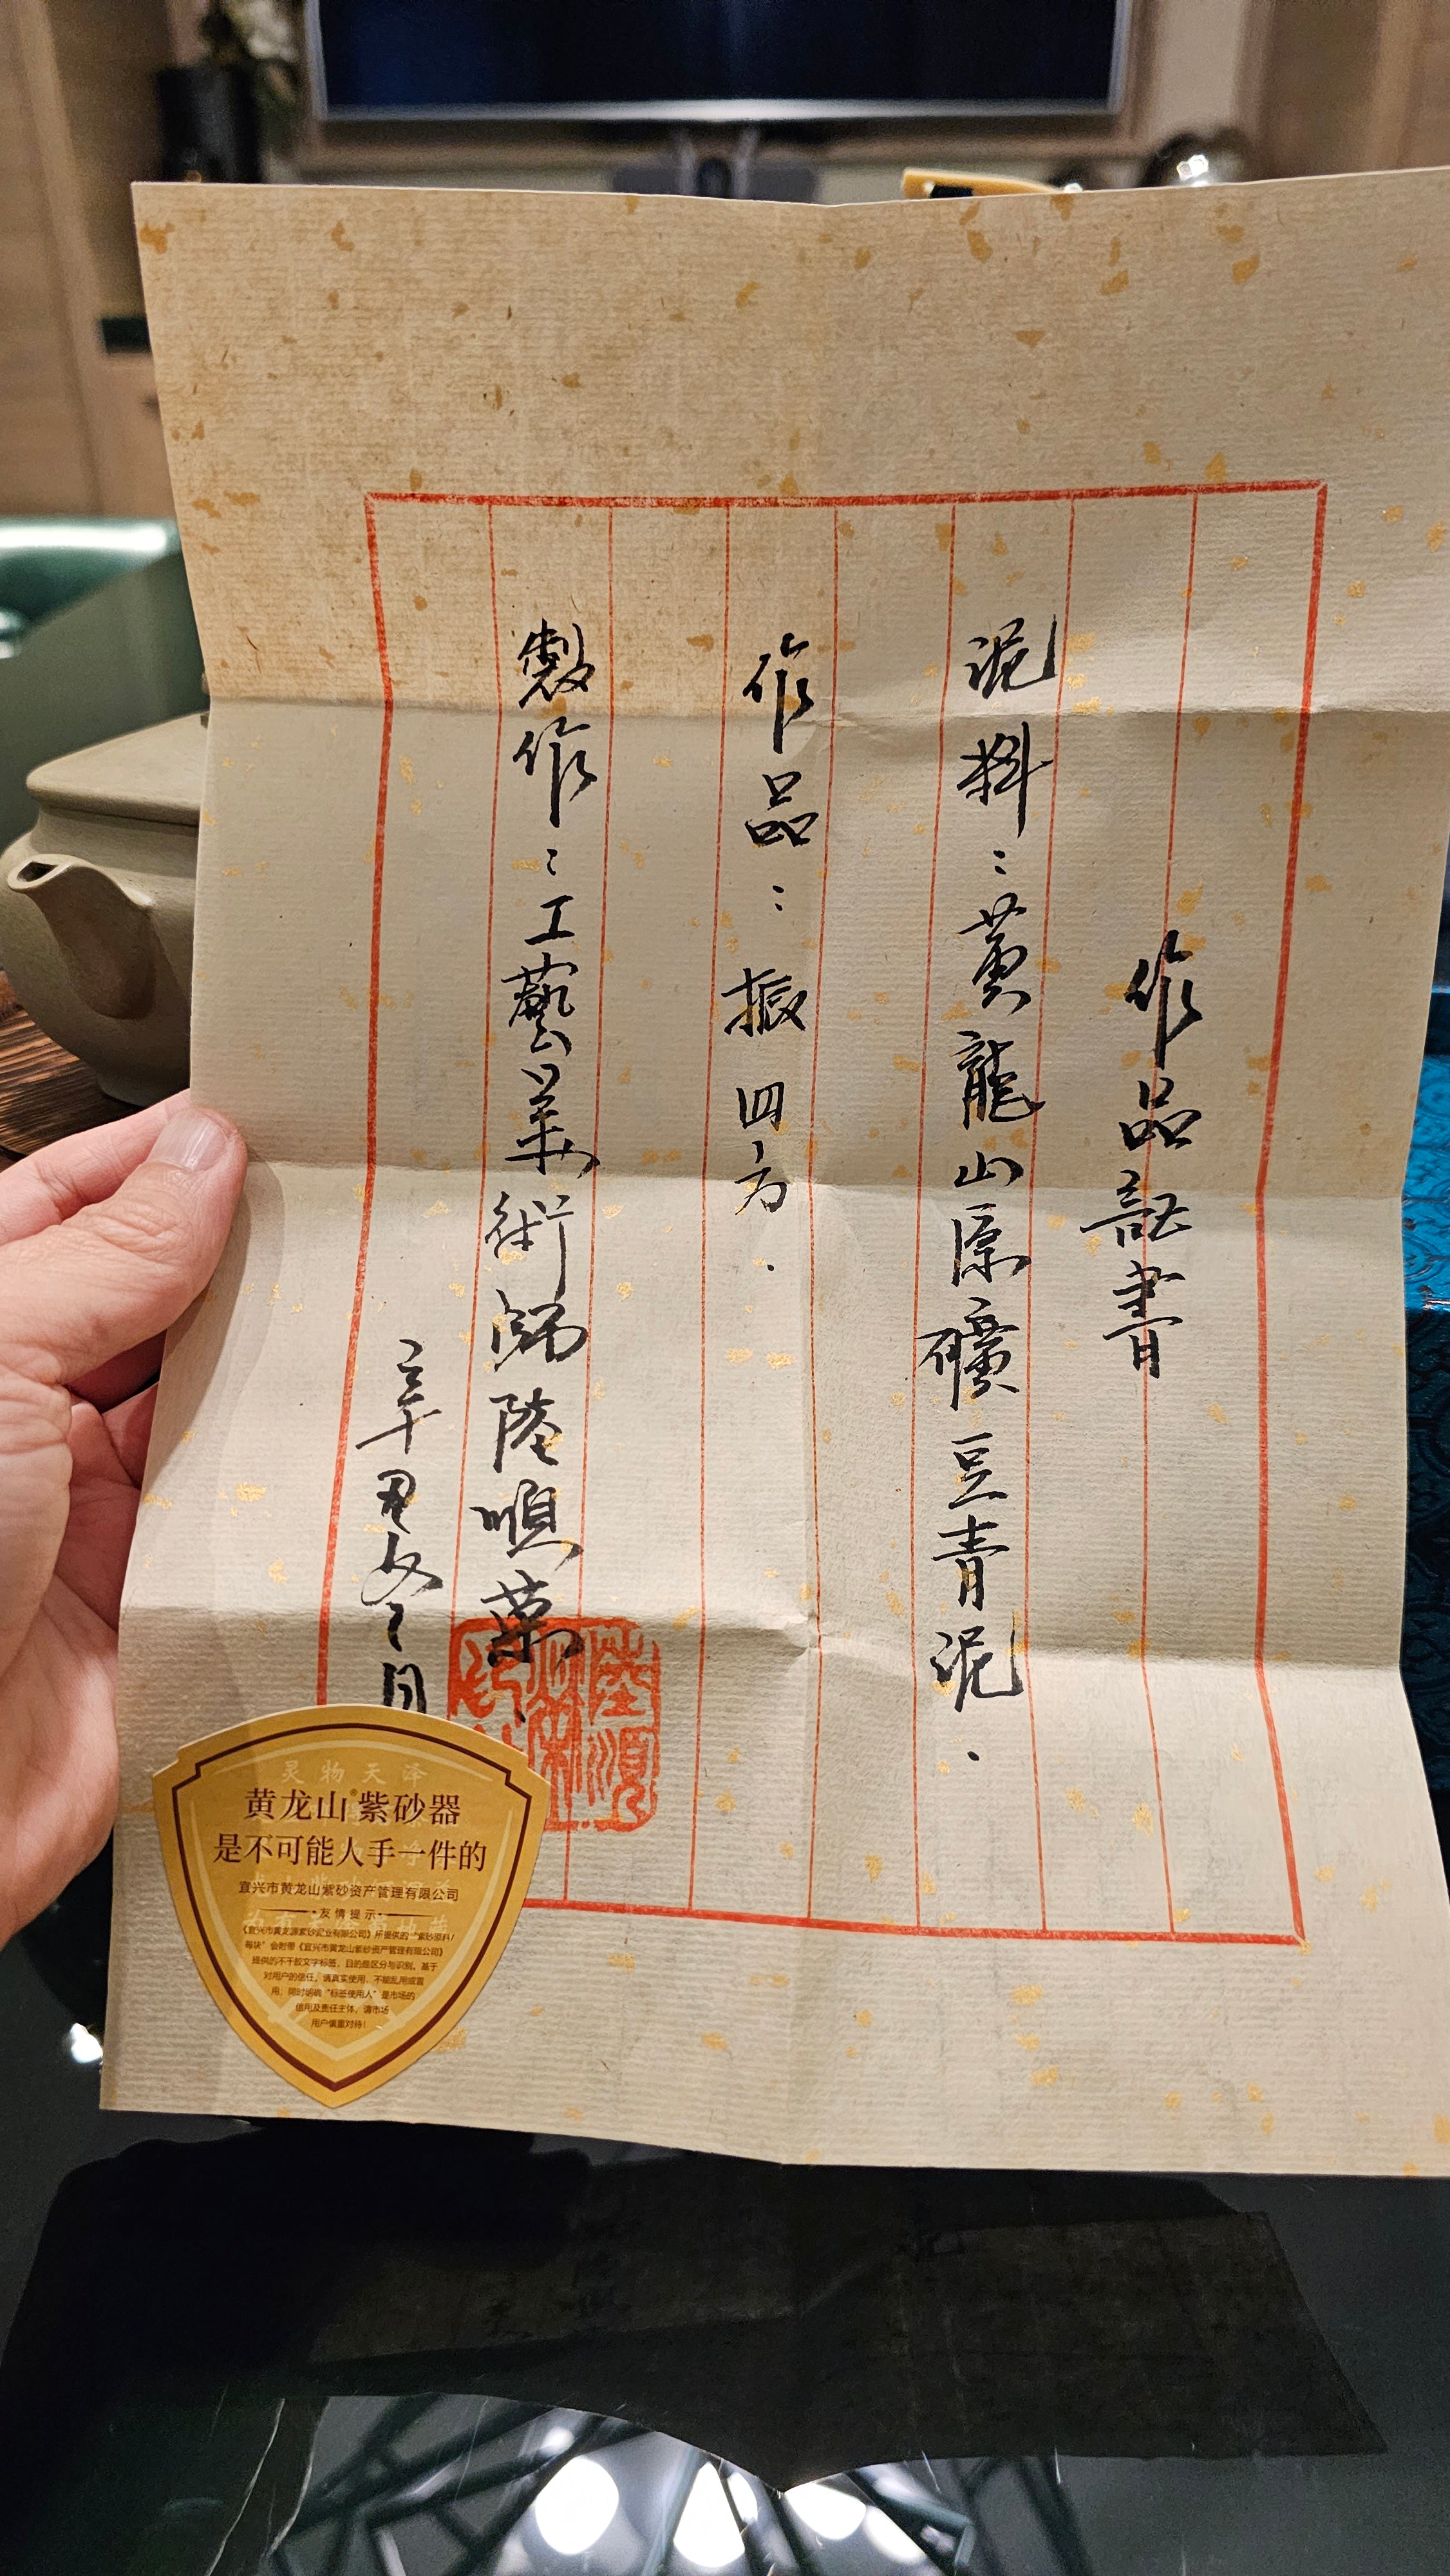 作品証書
泥料：黄龍山原礦豆青泥.
作品：振四方.
製作：工藝美術師陸順菊
冬月
陸順
灵物天泽
黄龙山®紫砂器
是不可能人手一件的
宜兴市黄龙山紫砂资产管理有限公司
友情提示
《宜兴市黄龙源紫砂泥业有限公司》所提供的“紫砂原料/
每块”会附带《宜兴市黄龙山紫砂资产管理有限公司》
提供的不干胶文字标签，目的是区分与识别。基于
对用户的信任，请真实使用，不能乱用或冒
用，同时明确“标签使用人”是市场的
信用及责任主体，请市场
用户慎重对待！